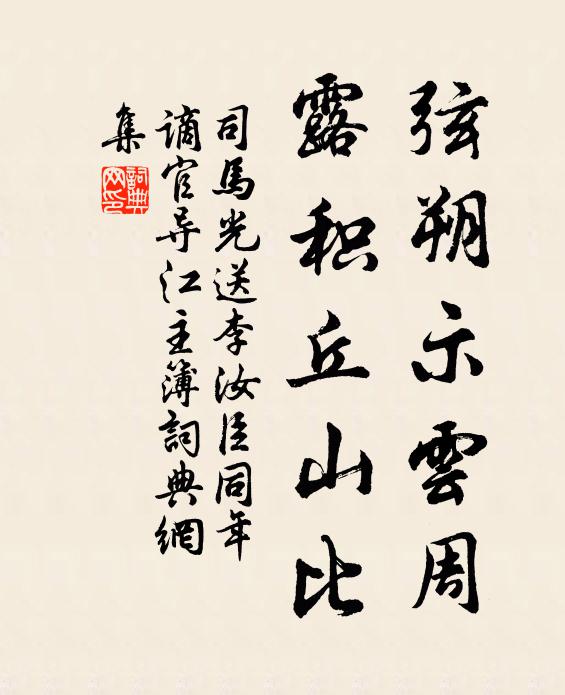 弦朔示雲周
露积丘山比
司馬光送李汝臣同年
谪官导江主簿詞典網
集
詞典網印